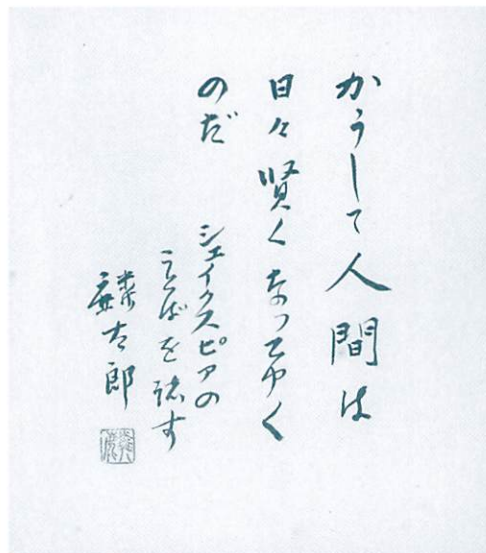 かうして人間は
日々賢くなつてゆく
のだ
シェイクスピアの
ことばを誌す
麟太郎